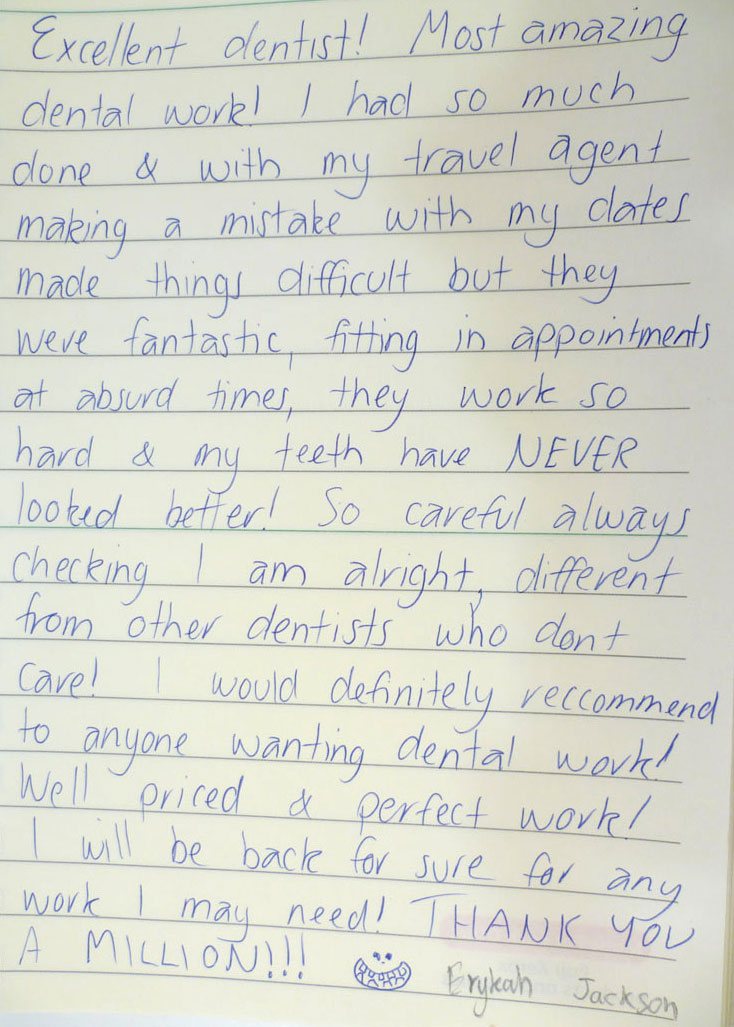 Excellent dentist! Most amazing
dental work! I had so much
done & with my travel agent
making a mistake with my dates
made things difficult but they
were fantastic, fitting in appointments
at absurd times, they work so
hard & my teeth have NEVER
looked better! So careful always
checking I am alright, different
from other dentists who dont
care! I would definitely reccommend
to anyone wanting dental work!
Well priced & perfect work!
I will be back for sure for any
work I may need! THANK YOU
A MILLION!!! Erykah Jackson